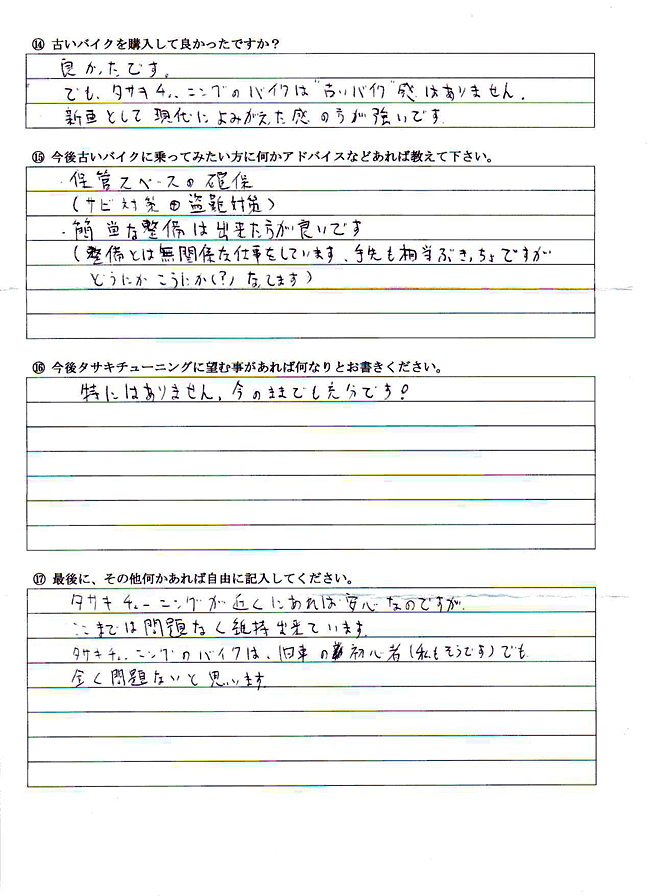 ⑭ 古いバイクを購入して良かったですか？
良かったです。
でも、タサキチューニングのバイクは"古いバイク"感はありません。
新車として現代によみがえった感の方が強いです。
⑮ 今後古いバイクに乗ってみたい方に何かアドバイスなどあれば教えて下さい。
・保管スペースの確保
(サビ対策 盗難対策)
・簡単な整備は出来た方が良いです
(整備とは無関係な仕事をしています、手先も相当ぶきっちょですが
どうにかこうにか(?)なってます)
⑯ 今後タサキチューニングに望む事があれば何なりとお書きください。
特にはありません、今のままでも充分です!
⑰ 最後に、その他何かあれば自由に記入してください。
タサキチューニングが近くにあれば安心なのですが、
ここまでは問題なく維持出来ています。
タサキチューニングのバイクは、旧車の初心者(私もそうです)でも
全く問題ないと思います。